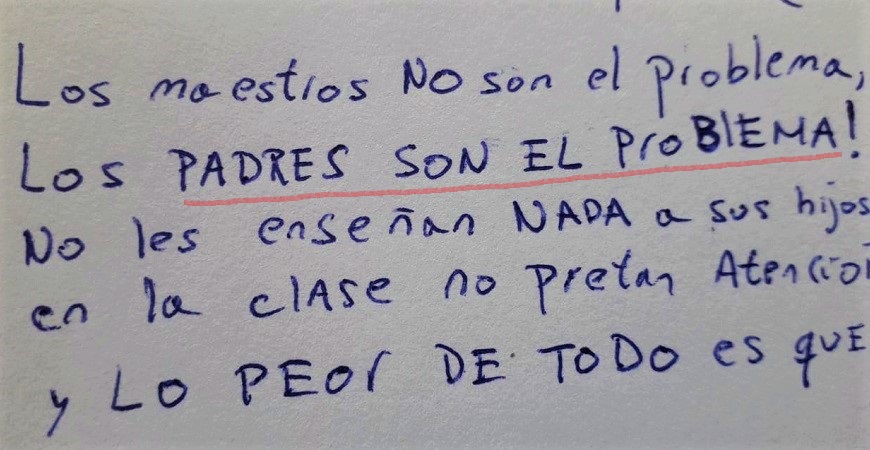 Los maestros No son el problema,
Los PADRES SON EL ProBlEMA!
No les enseñan NADA a sus hijos
en la clASE no pretan Atencion
y LO PEOr DE TODO es quE